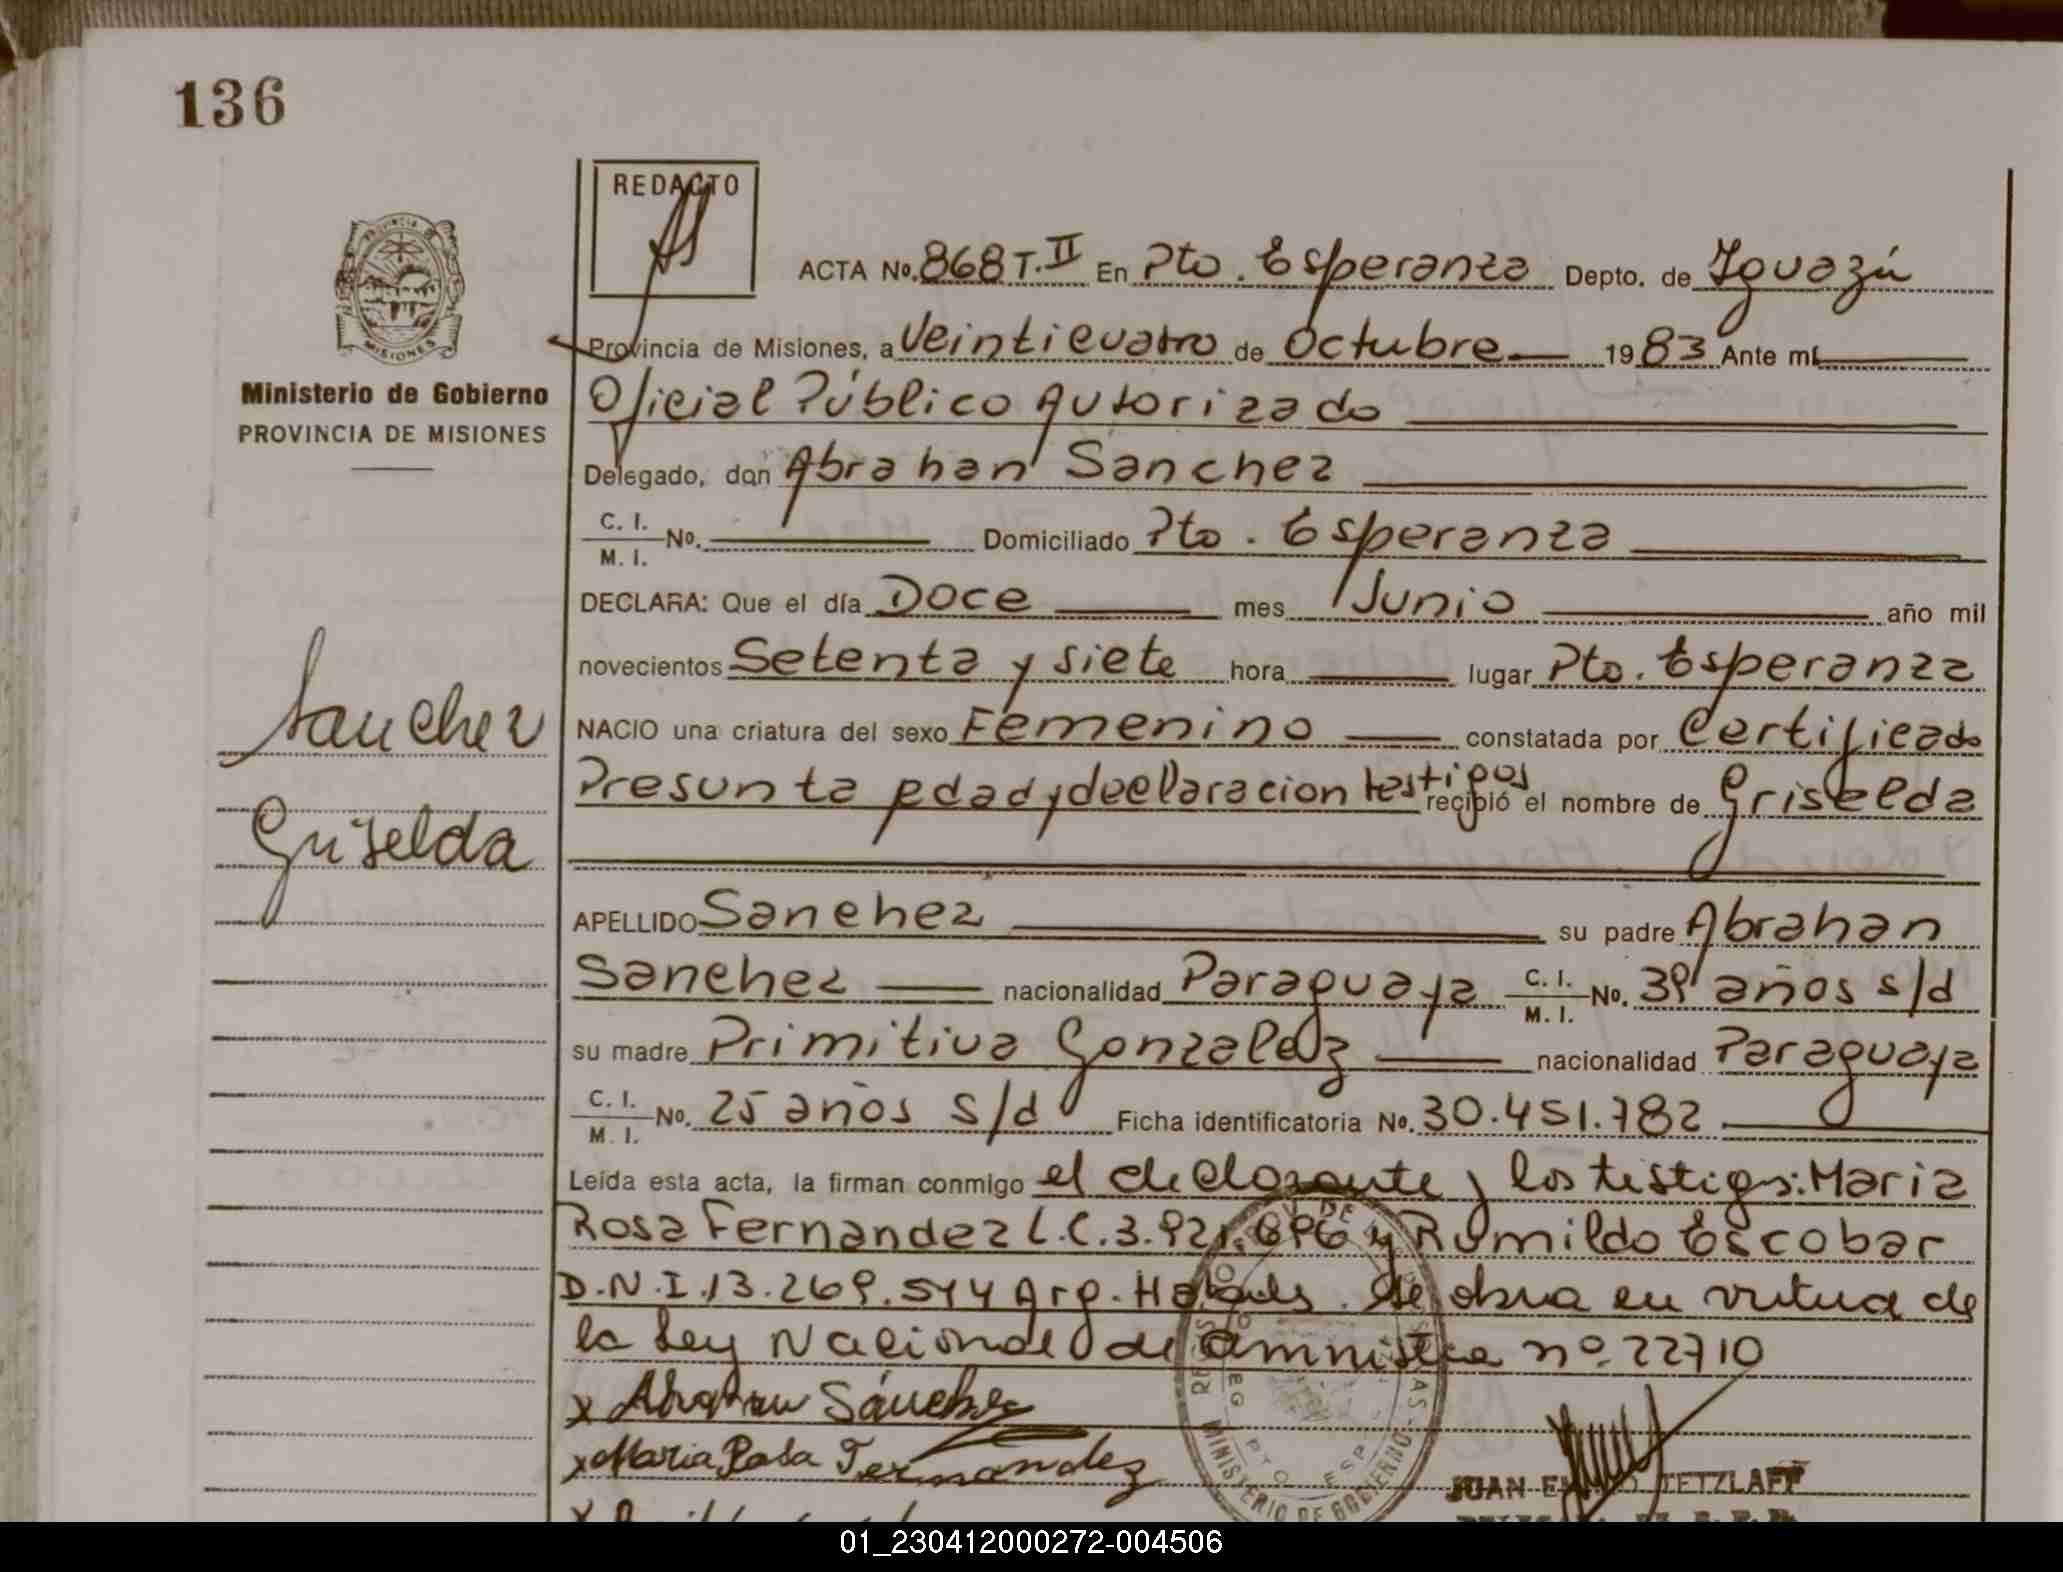 136
REDACTO
ACTA No. 868 T. II En Pto. Esperanza Depto. de Iguazú
Provincia de Misiones, a Veinticuatro de Octubre 1983 Ante mí
Ministerio de Gobierno
PROVINCIA DE MISIONES
Oficial Público Autorizado
Delegado, don Abrahan Sanchez
C. I.
M. I. No. Domiciliado Pto. Esperanza
DECLARA: Que el día Doce mes Junio año mil
novecientos Setenta y siete hora lugar Pto. Esperanza
Sanchez
NACIO una criatura del sexo Femenino constatada por Certificado
Presunta edad y declaracion testigos recibió el nombre de Griselda
Griselda
APELLIDO Sanchez su padre Abrahan
Sanchez nacionalidad Paraguaya C. I. M. I. No. 39 años s/d
su madre Primitiva Gonzalez nacionalidad Paraguaya
C. I. M. I. No. 25 años s/d Ficha identificatoria No. 30.451.782
Leída esta acta, la firman conmigo el declarante y los testigos: Maria
Rosa Fernandez L.C.3.921.696 y Romildo Escobar
D.N.I.13.269.544 Arg. Se obra en virtud de
la Ley Nacional de amnistia nº 22710
x Abrahan Sánchez
x Maria Rosa Fernandez
MINISTERIO DE GOBIERNO
JUAN TETZLAFF
01_230412000272-004506